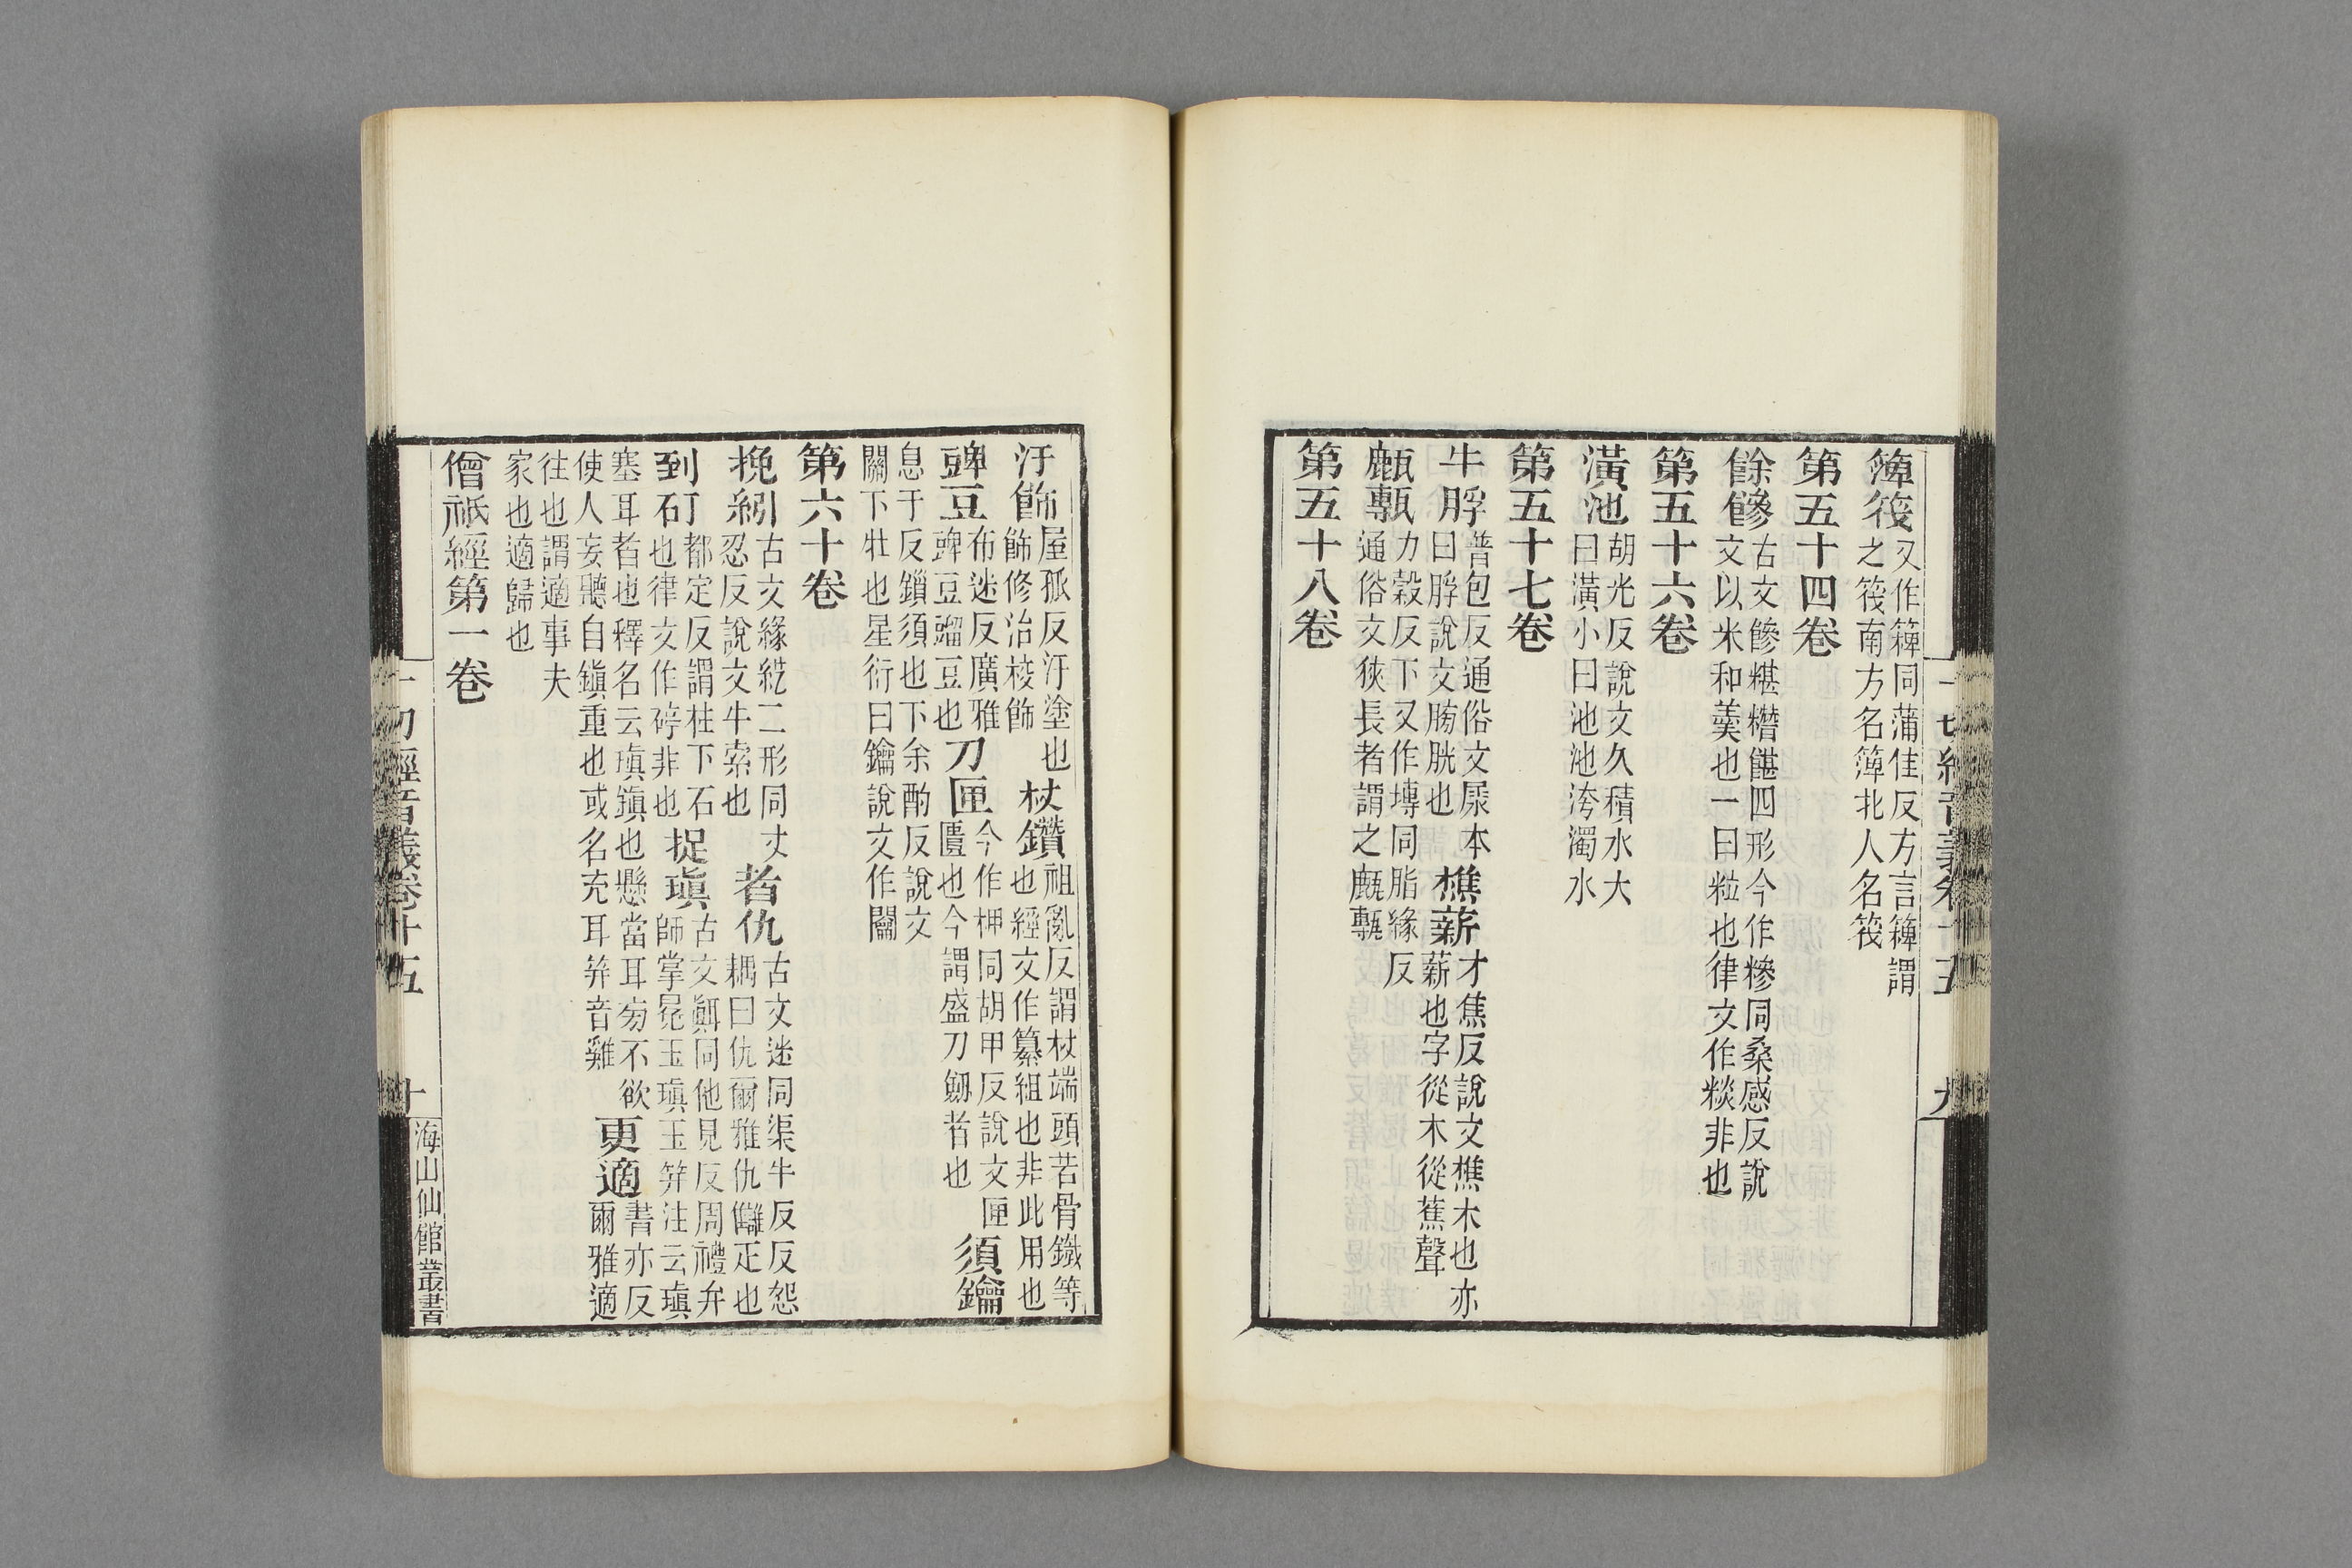 簰筏又作簰同蒲佳反方言簰謂之筏南方名簰北人名筏
第五十四卷
餘饊古文糝糂糣䭙四形今作糝同桑感反說文以米和羹也一曰粒也律文作㷋非也
第五十六卷
潢池胡光反說文久積水大曰潢小曰池池洿濁水
第五十七卷
牛脬普包反通俗文尿本曰脬說文膀胱也樵薪才焦反說文樵木也亦薪也字從木從蕉聲
甋甎力穀反下又作塼同脂緣反通俗文狹長者謂之甋甎
第五十八卷
一切經音義卷十五 九
汙飾屋孤反汙塗也飾修治裝飾杖鑽祖亂反謂杖端頭苦骨鐵等也經文作纂組也非此用也
豍豆布迷反廣雅豍豆䝁豆也刀匣今作柙同胡甲反說文匣匱也今謂盛刀劒者也須鑰
息于反鎖須也下余酌反說文關下牡也星衍曰鑰說文作闟
第六十卷
挽紖古文緣絼二形同丈忍反說文牛索也者仇古文逑同渠牛反反怨耦曰仇爾雅仇讎疋也
到矴都定反謂柱下石也律文作碠非也捉瑱古文䪴同他見反周禮弁師掌冕玉瑱玉笄注云瑱
塞耳者也釋名云瑱鎮也懸當耳旁不欲使人妄聽自鎮重也或名充耳笄音雞更適書亦反爾雅適
往也謂適事夫家也適歸也
僧祇經第一卷
一切經音義卷十五 十 海山仙館叢書